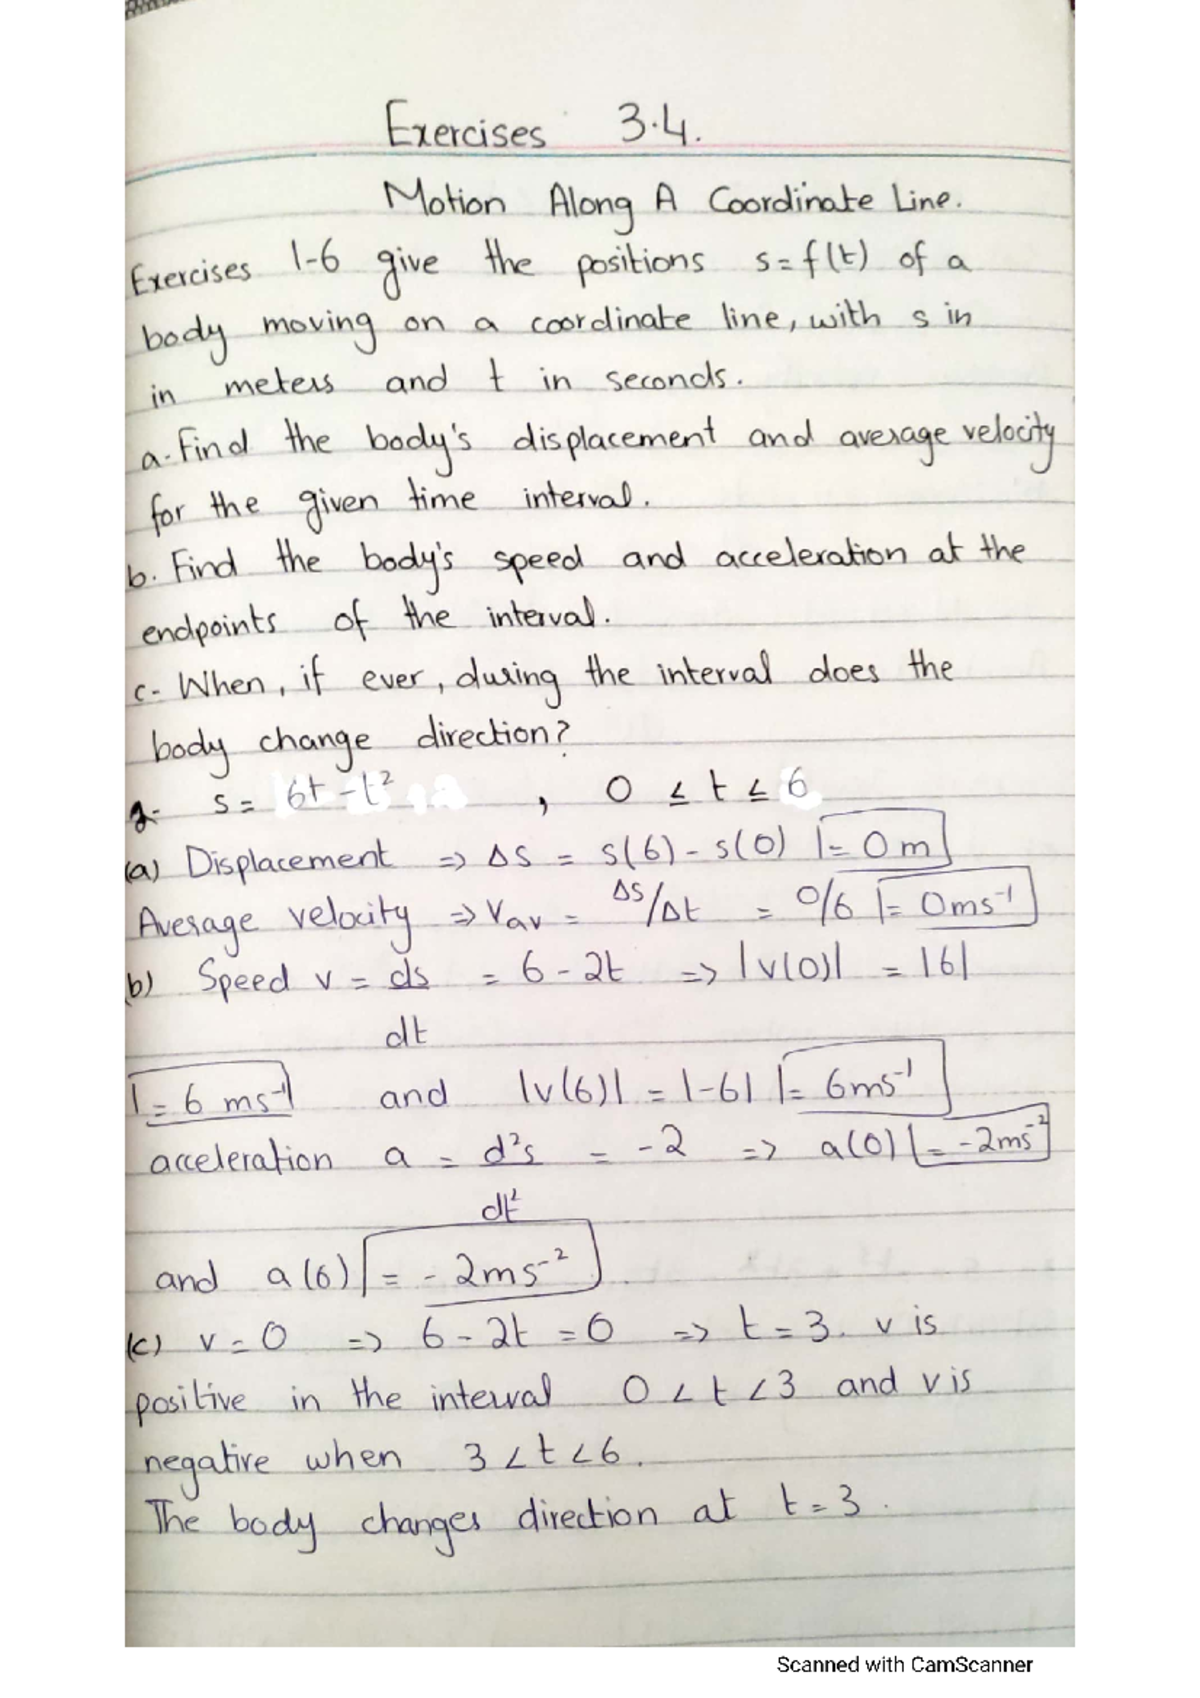 Exercises 3.4.
Motion Along A Coordinate Line.
Exercises 1-6 give the positions s=f(t) of a
body moving on a coordinate line, with s in
in meters and t in seconds.
a. Find the body's displacement and average velocity
for the given time interval.
b. Find the body's speed and acceleration at the
endpoints of the interval.
c- When, if ever, during the interval does the
body change direction?
s = 6t - t² , 0 ≤ t ≤ 6
(a) Displacement => Δs = s(6) - s(0) = 0 m
Average velocity => Vav = Δs/Δt = 0/6 = 0 ms⁻¹
(b) Speed v = ds/dt = 6 - 2t => |v(0)| = |6|
= 6 ms⁻¹ and |v(6)| = |-6| = 6ms⁻¹
acceleration a = d²s/dt² = -2 => a(0) = -2ms⁻²
and a(6) = -2ms⁻²
(c) v = 0 => 6 - 2t = 0 => t = 3. v is
positive in the interval 0 < t < 3 and v is
negative when 3 < t < 6.
The body changes direction at t = 3.
Scanned with CamScanner